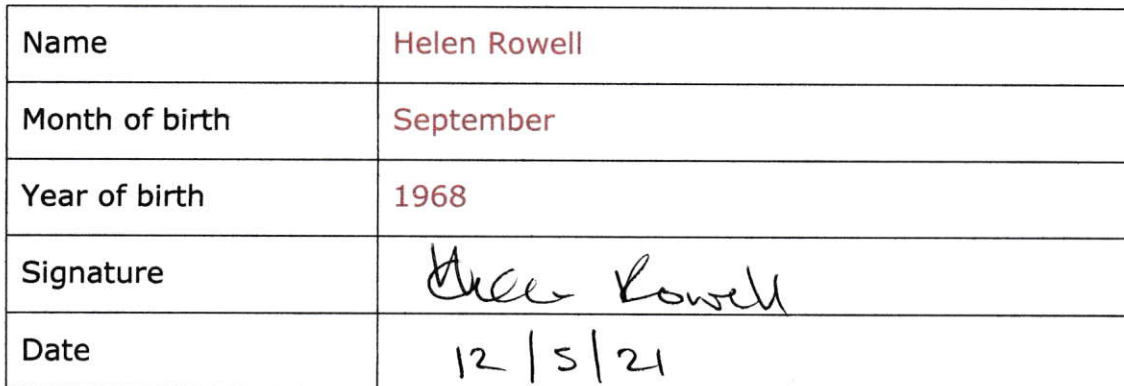 Name Helen Rowell
Month of birth September
Year of birth 1968
Signature Helen Rowell
Date 12/5/21